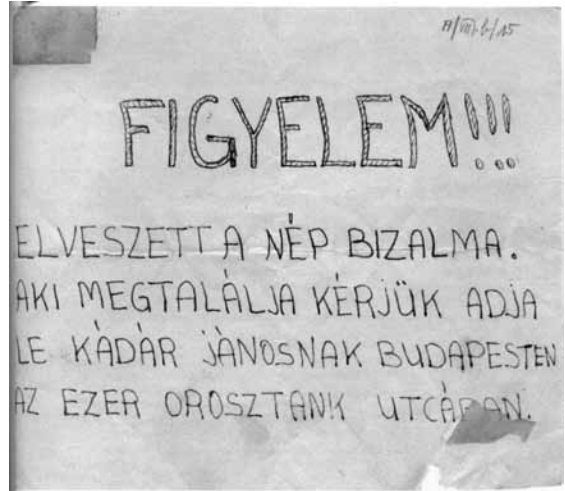 FIGYELEM!!!
ELVESZETT A NÉP BIZALMA.
AKI MEGTALÁLJA KÉRJÜK ADJA
LE KÁDÁR JÁNOSNAK BUDAPESTEN
AZ EZER OROSZTANK UTCÁBAN.